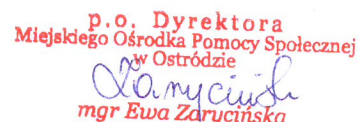 p.o. Dyrektora
Miejskiego Ośrodka Pomocy Społecznej
w Ostródzie
Zarycińska
mgr Ewa Zarycińska